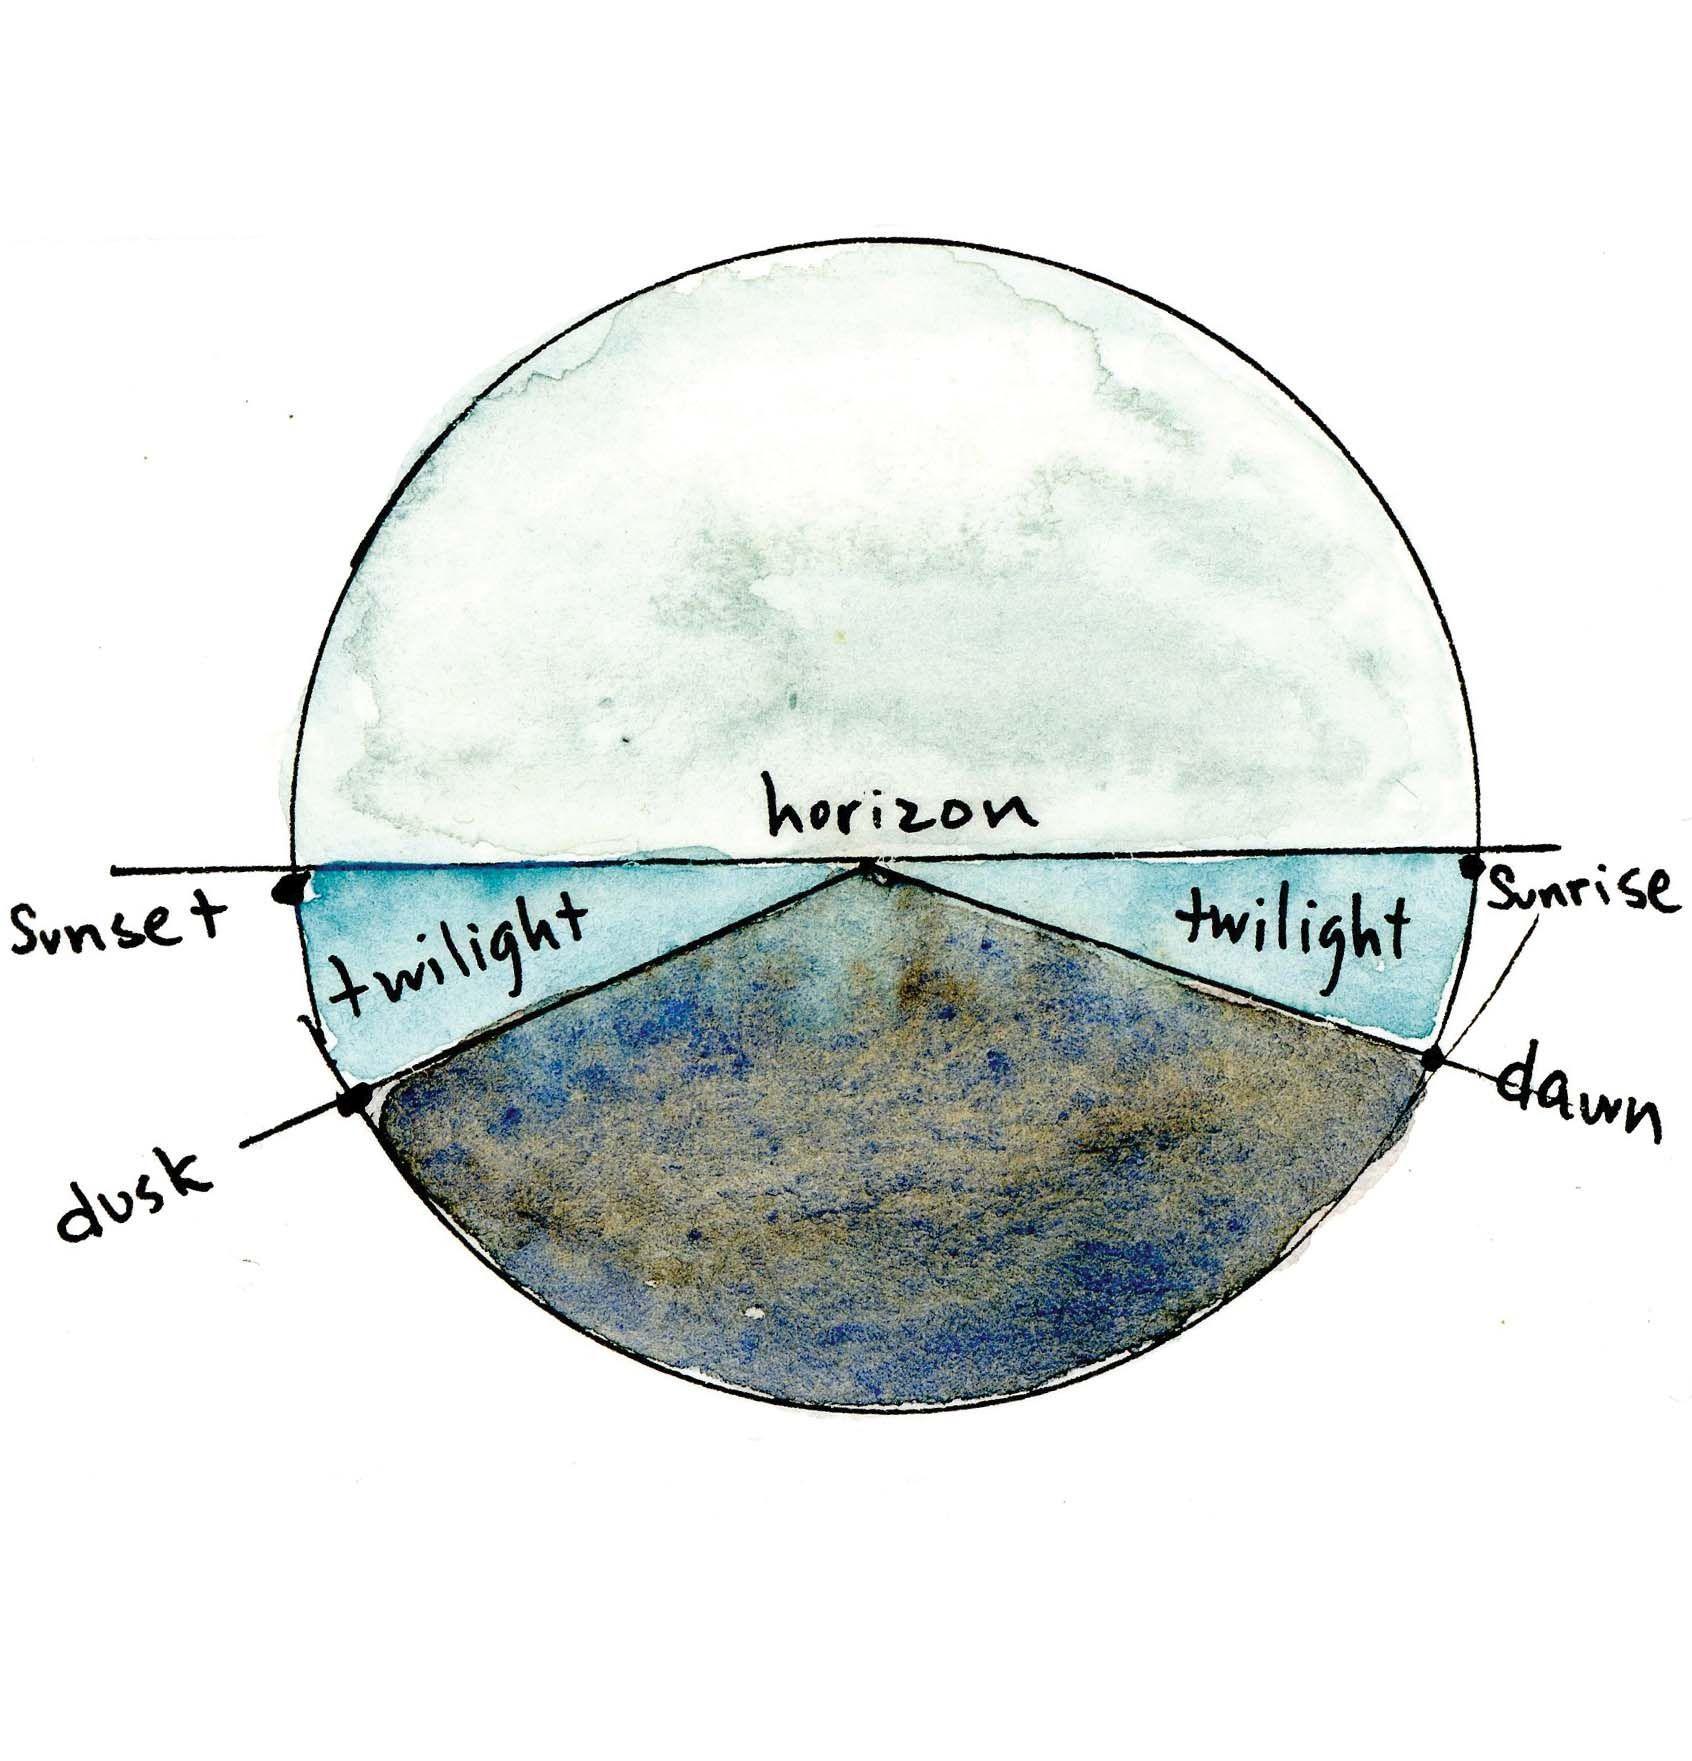 horizon
Sunset
Sunrise
twilight
twilight
dusk
dawn